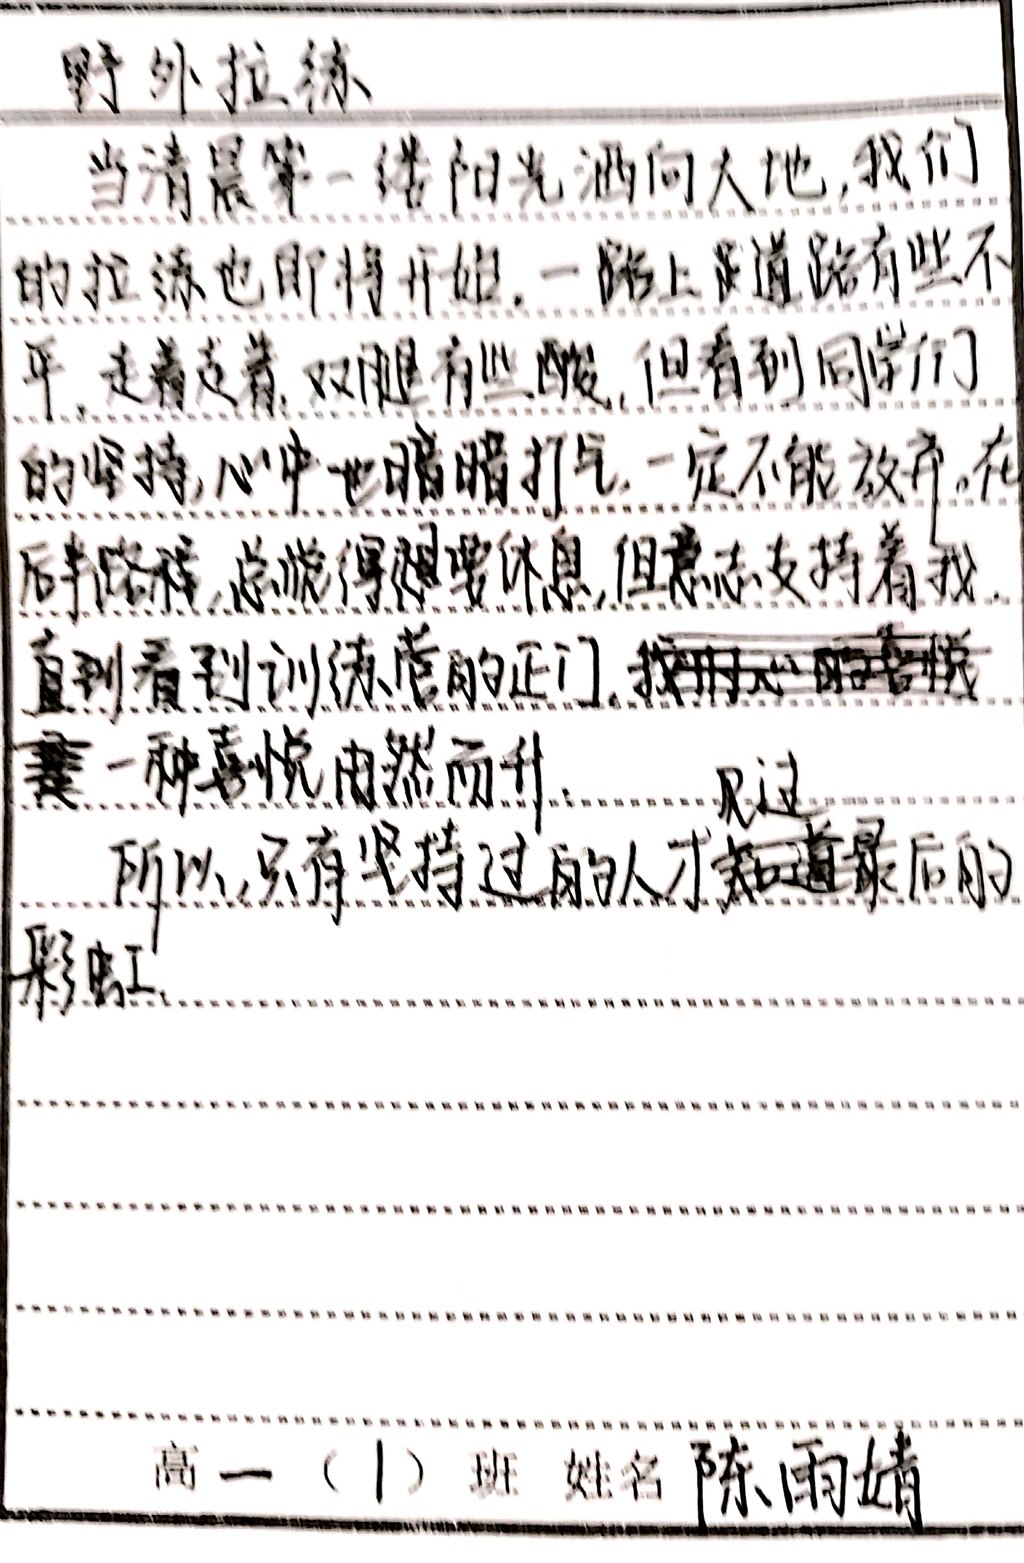 野外拉练
当清晨第一缕阳光洒向大地,我们
的拉练也即将开始.一路上道路有些不
平.走着走着.双腿有些酸,但看到同学们
的坚持,心中也暗暗打气.一定不能放弃.在
后半路程,总觉得想要休息,但意志支持着我.
直到看到训练营的正门.
一种喜悦由然而升.
见过
所以,只有坚持过的人才最后的
彩虹.
高一(1)班 姓名 陈雨婧